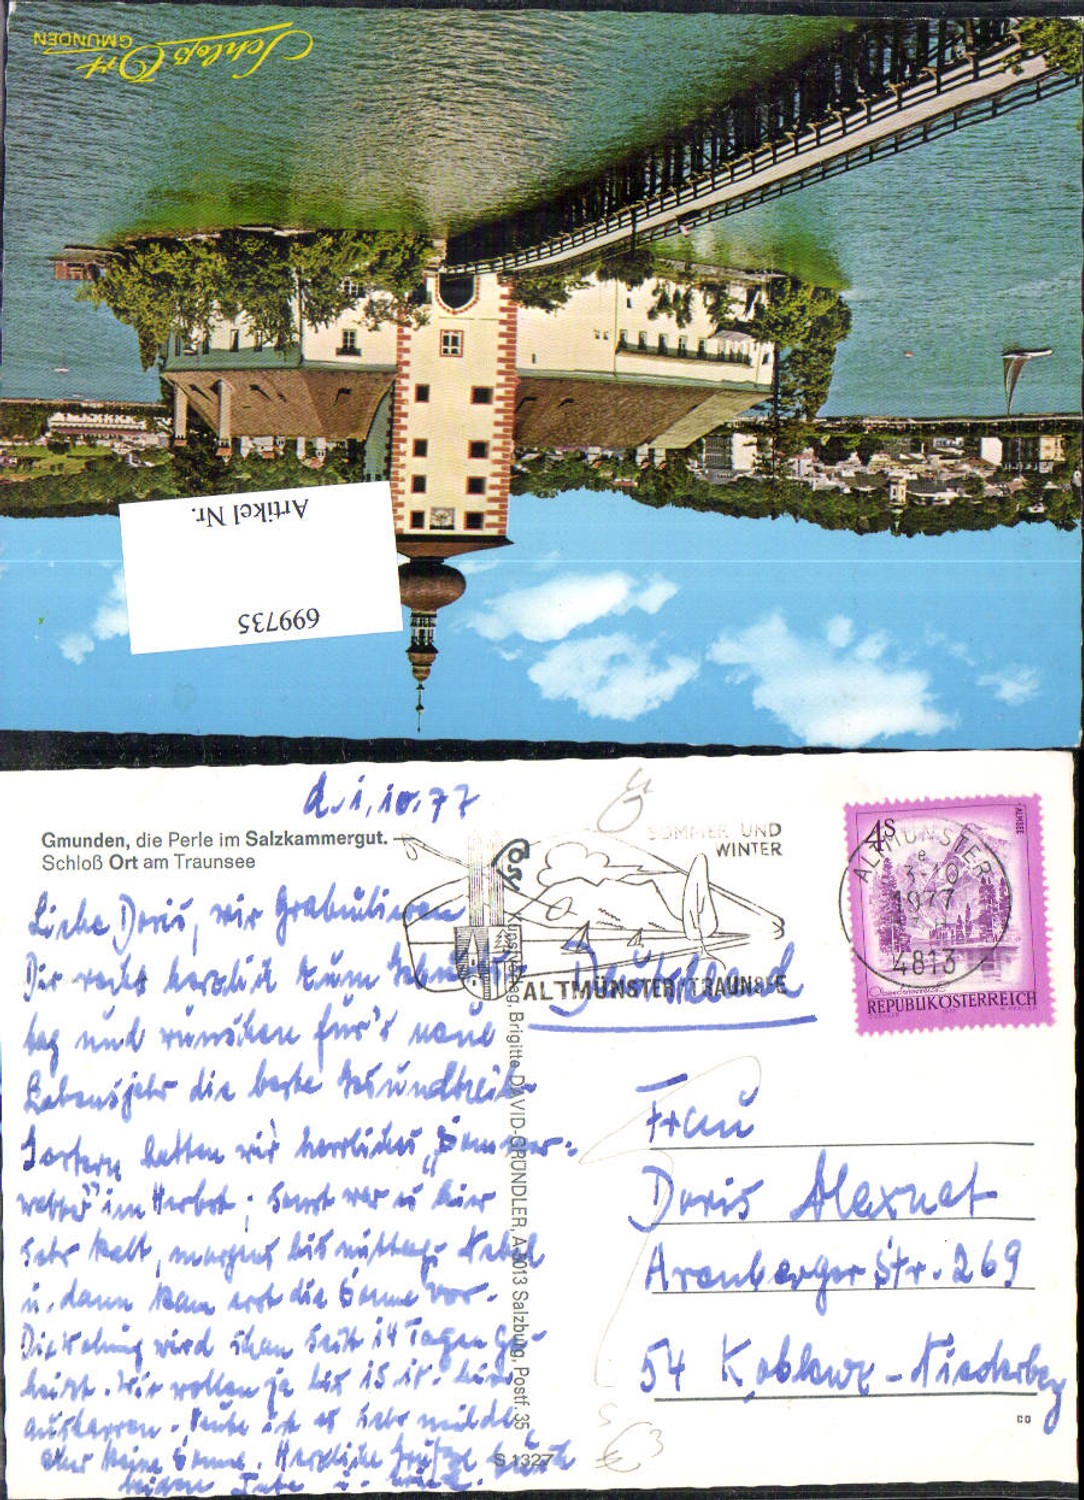 Schloß Ort
GMUNDEN
Artikel Nr.
699735
d. 1.10.77
Gmunden, die Perle im Salzkammergut.
Schloß Ort am Traunsee
SOMMER UND
WINTER
ALTMÜNSTER/TRAUNSEE
ALTMÜNSTER
e
3.-10.
1977
4813
4S
ALMSEE
REPUBLIK ÖSTERREICH
Liebe Doris, wir Gratulieren
Dir recht herzlich zum Geburts-
tag und wünschen für's neue
Lebensjahr die beste Gesundheit.
Gestern hatten wir herrliches „Sommer-
wetter" im Herbst; sonst war es hier
sehr kalt, morgens bis mittags Nebel
u. dann kam erst die Sonne vor.
Die Wohnung wird schon seit 14 Tagen ge-
heizt. Wir wollen ja bis 15. hier
ausharren. Heute ist es sehr milde
aber keine Sonne. Herzliche Grüße Euch
beiden
Kunstverlag, Brigitte DAVID-GRÜNDLER, A-5013 Salzburg, Postf. 35
S 1327
Deutschland
Frau
Doris Alexnat
Arenberger Str. 269
54 Koblenz - Niederberg